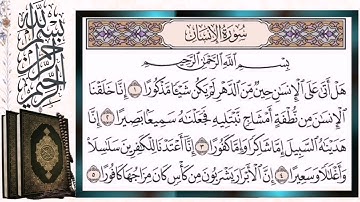 سُورَةُ الإِنسَانِ
بِسْمِ اللَّهِ الرَّحْمَٰنِ الرَّحِيمِ
هَلْ أَتَىٰ عَلَى الْإِنسَٰنِ حِينٌ مِّنَ الدَّهْرِ لَمْ يَكُن شَيْـًٔا مَّذْكُورًا ١ إِنَّا خَلَقْنَا
الْإِنسَٰنَ مِن نُّطْفَةٍ أَمْشَاجٍ نَّبْتَلِيهِ فَجَعَلْنَٰهُ سَمِيعًۢا بَصِيرًا ٢ إِنَّا
هَدَيْنَٰهُ السَّبِيلَ إِمَّا شَاكِرًا وَإِمَّا كَفُورًا ٣ إِنَّا أَعْتَدْنَا لِلْكَٰفِرِينَ سَلَٰسِلَا۟
وَأَغْلَٰلًا وَسَعِيرًا ٤ إِنَّ الْأَبْرَارَ يَشْرَبُونَ مِن كَأْسٍ كَانَ مِزَاجُهَا كَافُورًا ٥
بسم الله الرحمن الرحيم